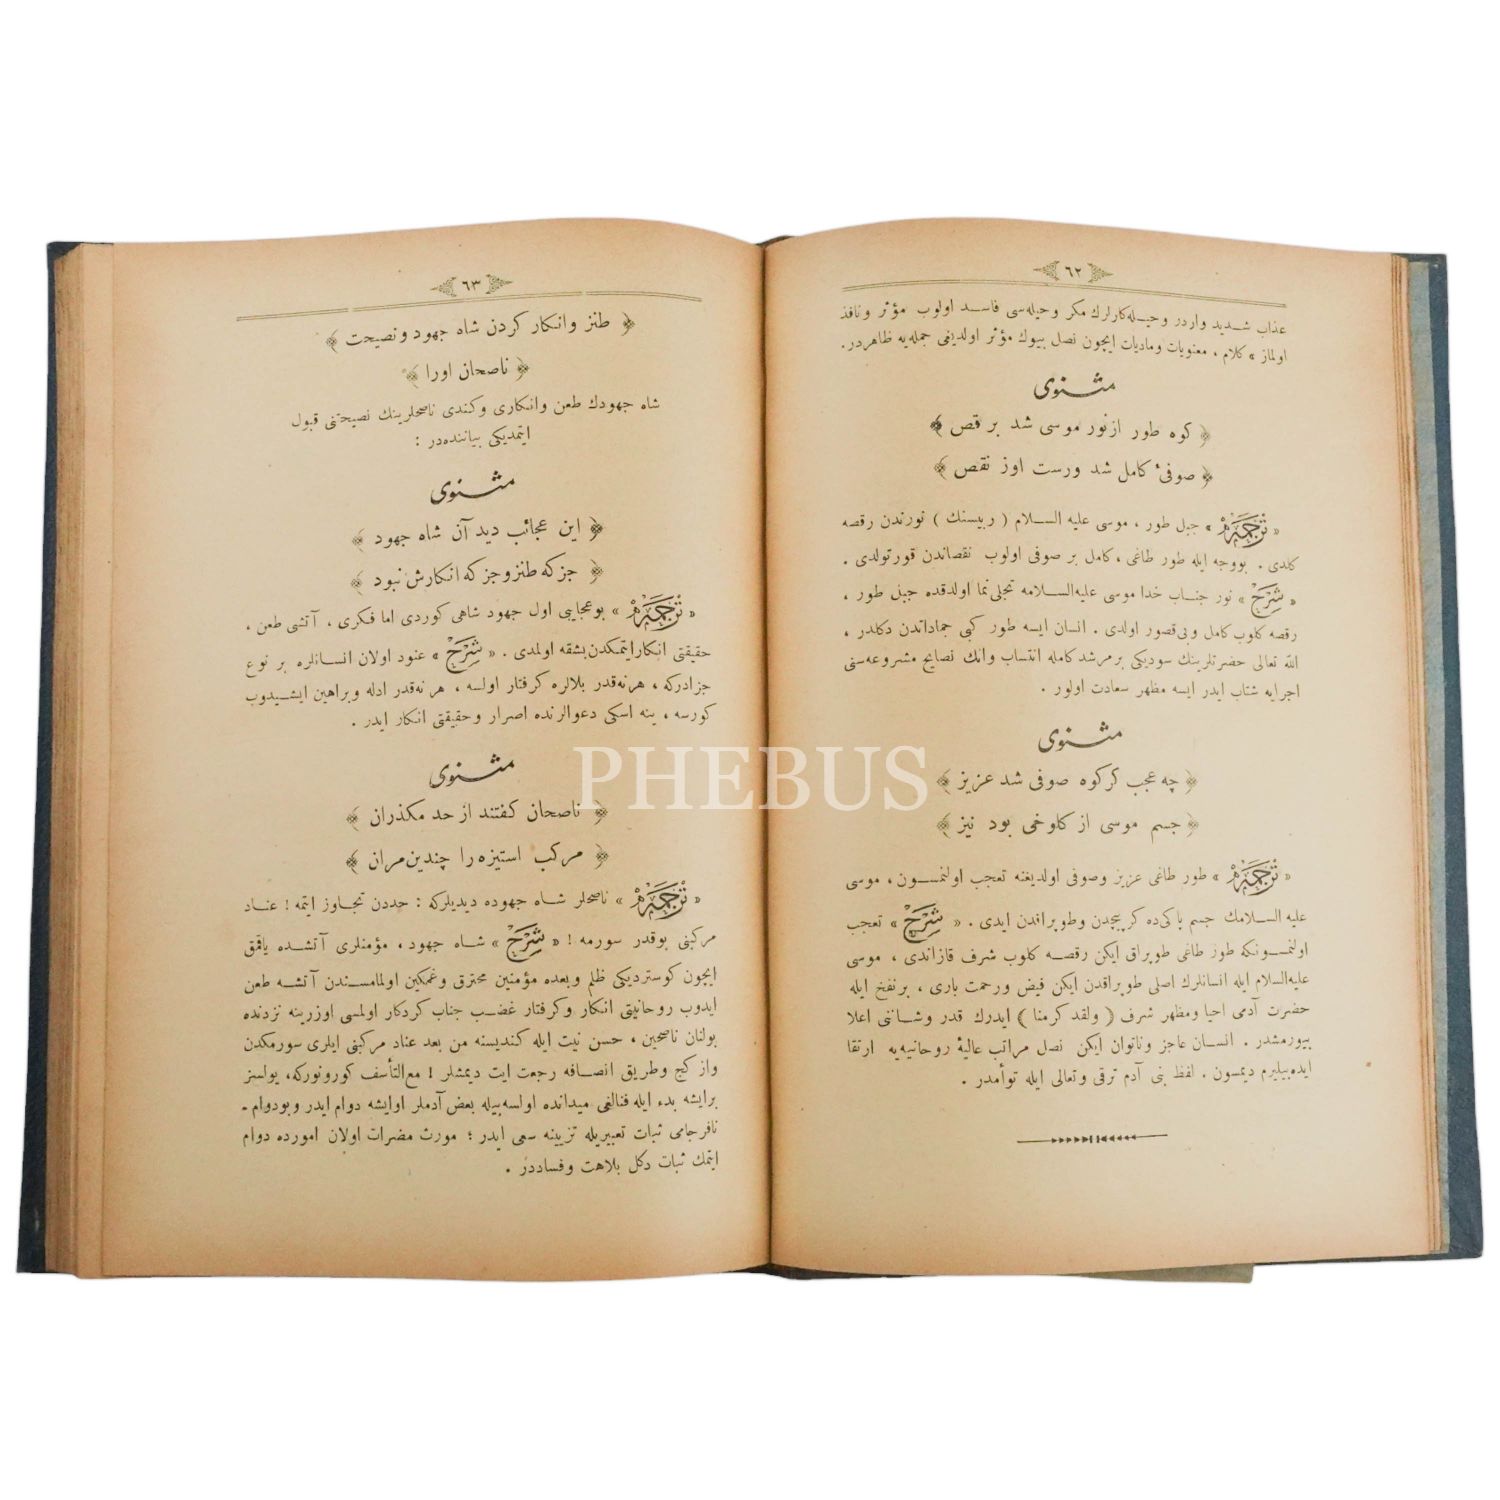 ﴿ ٦٢ ﴾
عذاب شديد واردر وحيله‌كارلرك مكر وحيله‌سى فاسد اولوب مؤثر ونافذ
اولماز » كلام ، معنويات وماديات ايچون نصل بيوك مؤثر اولديغى جمله‌يه ظاهردر.
مثنوى
﴿ كوه طور از نور موسى شد برقص ﴾
﴿ صوفئ كامل شد ورست اوز نقص ﴾
« ترجمه » جبل طور ، موسى عليه السلام ( ربيسنك ) نورندن رقصه
كلدى . بووجه ايله طور طاغى ، كامل بر صوفى اولوب نقصاندن قورتولدى .
« شرح » نور جناب خدا موسى عليه‌السلامه تجلى‌نما اولدقده جبل طور ،
رقصه كلوب كامل وبى‌قصور اولدى . انسان ايسه طور كبى جماداتدن دكلدر ،
الله تعالى حضرتلرينك سوديكى برمرشد كامله انتساب وانك نصايح مشروعه‌سنى
اجرايه شتاب ايدر ايسه مظهر سعادت اولور .
مثنوى
﴿ چه عجب كر كوه صوفى شد عزيز ﴾
﴿ جسم موسى از كلوخى بود نيز ﴾
« ترجمه » طور طاغى عزيز وصوفى اولديغنه تعجب اولنمسون ، موسى
عليه السلامك جسم پاكى‌ده كرپيچدن وطوپراقدن ايدى . « شرح » تعجب
اولنمسونكه طور طاغى طوپراق ايكن رقصه كلوب شرف قازاندى ، موسى
عليه‌السلام ايله انسانلرك اصلى طوپراقدن ايكن فيض ورحمت بارى ، برنفخ ايله
حضرت آدمى احيا ومظهر شرف ( ولقد كرمنا ) ايدرك قدر وشاننى اعلا
بيورمشدر . انسان عاجز وناتوان ايكن نصل مراتب عاليۀ روحانيه‌يه ارتقا
ايده‌بيليرم ديمسون . لفظ بنى آدم ترقى وتعالى ايله توأمدر .
﴿ ٦٣ ﴾
﴿ طنز وانكار كردن شاه جهود ونصيحت ﴾
﴿ ناصحان اورا ﴾
شاه جهودك طعن وانكارى وكندى ناصحلرينك نصيحتنى قبول
ايتمديكى بياننده‌در :
مثنوى
﴿ اين عجائب ديد آن شاه جهود ﴾
﴿ جز كه طنز وجز كه انكارش نبود ﴾
« ترجمه » بوعجايبى اول جهود شاهى كوردى اما فكرى ، آتشى طعن ،
حقيقتى انكار ايتمكدن بشقه اولمدى . « شرح » عنود اولان انسانلره بر نوع
جزادركه ، هرنه‌قدر بلالره كرفتار اولسه ، هرنه‌قدر ادله وبراهين ايشيدوب
كورسه ، ينه اسكى دعوالرنده اصرار وحقيقتى انكار ايدر .
مثنوى
﴿ ناصحان كفتند از حد مكذران ﴾
﴿ مركب استيزه را چندين مران ﴾
« ترجمه » ناصحلر شاه جهوده ديديلركه : حددن تجاوز ايتمه ! عناد
مركبنى بوقدر سورمه ! « شرح » شاه جهود ، مؤمنلرى آتشده ياقمق
ايچون كوستردیكى ظلم وبعده مؤمنين محترق وغمكين اولمامسندن آتشه طعن
ايدوب روحانيتى انكار وكرفتار غضب جناب كردكار اولمسى اوزرينه نزدنده
بولنان ناصحين ، حسن نيت ايله كنديسنه من بعد عناد مركبنى ايلرى سورمكدن
واز كچ وطريق انصافه رجعت ايت ديمشلر ! مع‌التأسف كورونوركه، يولسز
برايشه بدء ايله فنالغى ميدانده اولسه‌بيله بعض آدملر اوايشه دوام ايدر وبودوام -
نافرجامى ثبات تعبيريله تزيينه سعى ايدر ؛ مورث مضرات اولان امورده دوام
ايتمك ثبات دكل بلاهت وفساددر .
PHEBUS